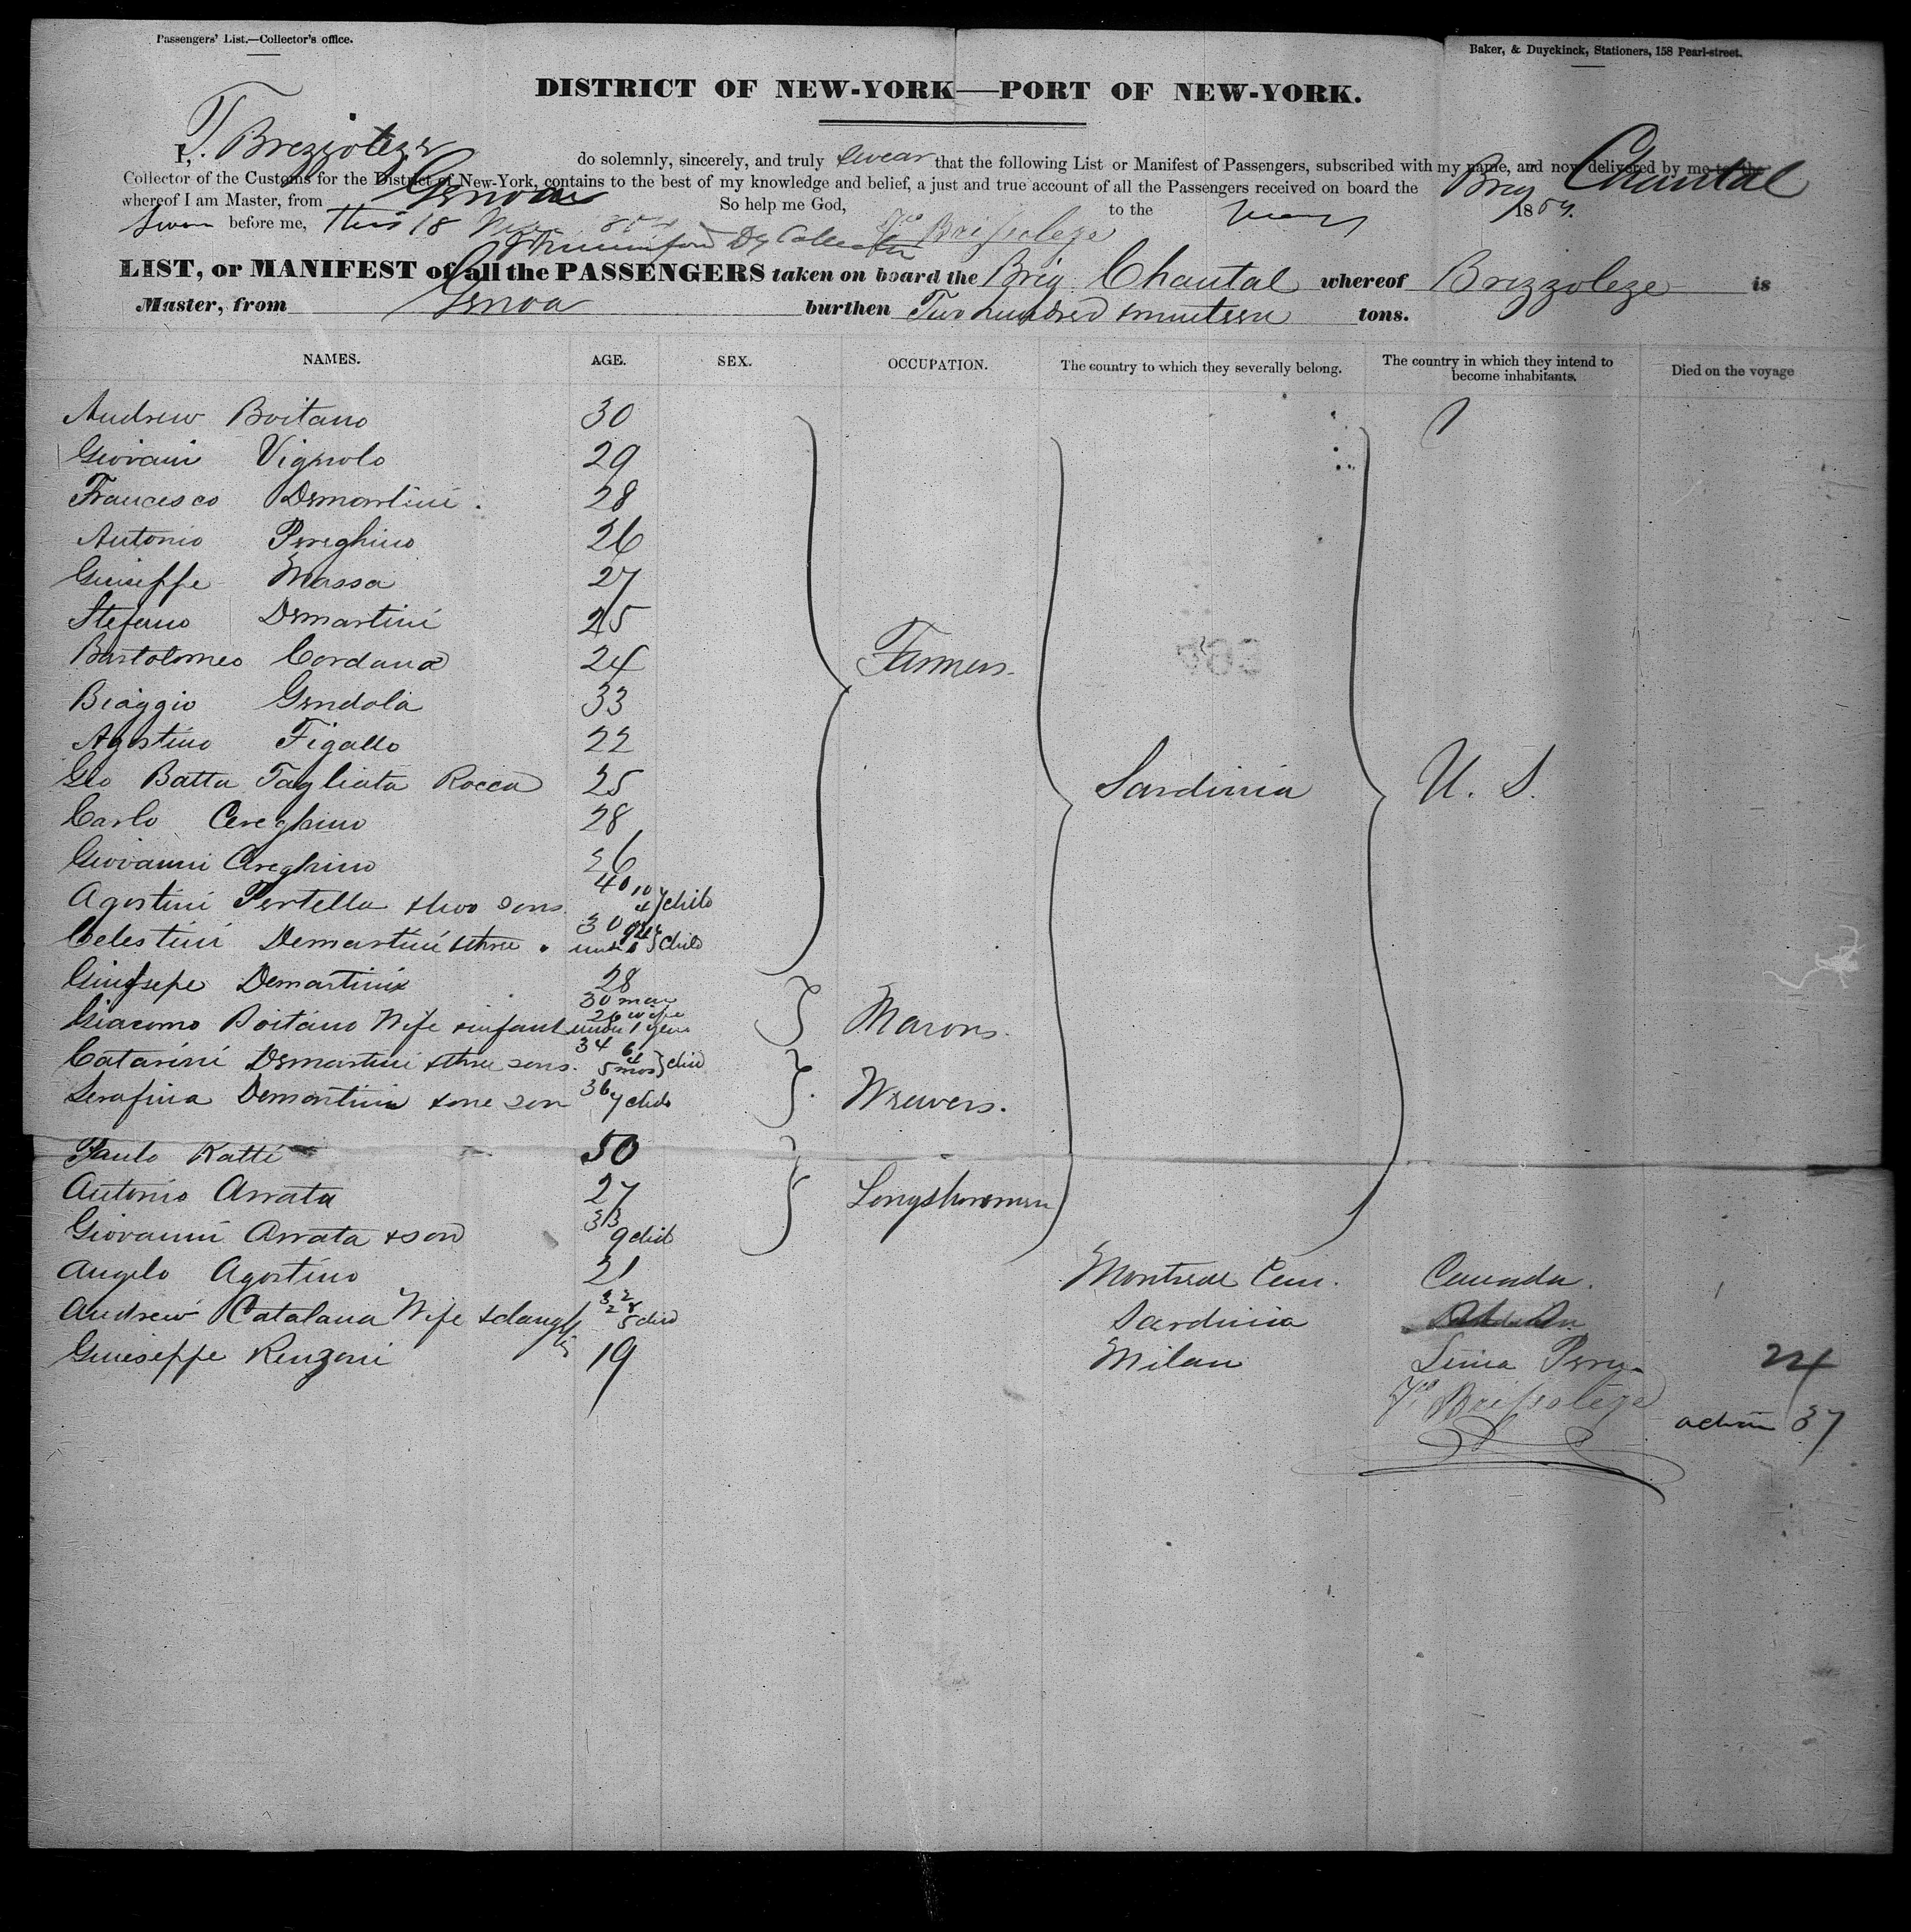 Passengers' List.—Collector's office.
Baker, & Duyckinck, Stationers, 158 Pearl-street.
DISTRICT OF NEW-YORK—PORT OF NEW-YORK.
I, do solemnly, sincerely, and truly swear that the following List or Manifest of Passengers, subscribed with my name, and now delivered by me to the
Collector of the Customs for the District of New-York, contains to the best of my knowledge and belief, a just and true account of all the Passengers received on board the Brig Chantal
whereof I am Master, from Genoa to the
So help me God, 185
Sworn before me, this 18
LIST, or MANIFEST of all the PASSENGERS taken on board the Brig Chantal whereof Brizzoleze is
Master, from Genoa burthen Two hundred & tons.
NAMES. AGE. SEX. OCCUPATION. The country to which they severally belong. The country in which they intend to become inhabitants. Died on the voyage
Andrew Boitano 30
Giovani Vignolo 29
Francesco Demartini 28
Antonio Pereghino 26
Guiseppe Massa 27
Stefano Demartini 25
Bartolomeo Cordana 24 Farmers.
Biaggio Gendola 33
Agostino Figallo 22
Gio Batta Tagliata Rocca 25 Sardinia U. S.
Carlo Cereghino 28
Giovanni Cereghino 26
Agostini Pertella & two sons 40 10 4 } child
Celestini Demartini & three 30 under 1 } child
Giusepe Demartini 28
Giacomo Boitano Wife & infant 30 man 26 wife under 1 year Masons.
Catarini Demartini & three sons. 34 6 4 5 mos } child
Serafina Demartini & one son 36 7 child Weavers.
Paulo Ratti 50
Antonio Arrata 27 Longshoremen
Giovanni Arrata & son 33 9 child
Angelo Agostino 21 Canada.
Andrew Catalana Wife & daughter 32 28 5 child Sardinia
Guiseppe Renzoni 19 Milan Lima Peru 24
37